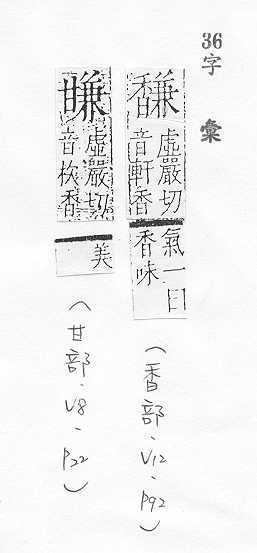 36
字彙
馦
虛嚴切
音軒香
氣一曰
香味
（香部、V12、P92）
虛嚴切
音杴香
美
（甘部、V8、P22）